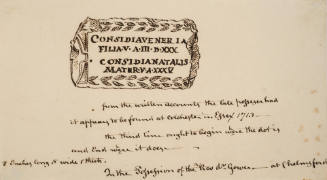 CONSIDIA VENERIA
FILIA V · A · III · D · XXX
· CONSIDIA NATALIS
MATER V · A · XXXV
from the written accounts the late possessor had
it appears to be found at Colchester in Essex 1713 —
the third line ought to begin were the dot is
and End were it does —
8 Inches long 5 wide 1 thick.
In the Possession of the Revd Dr Gower — at Chelmsford